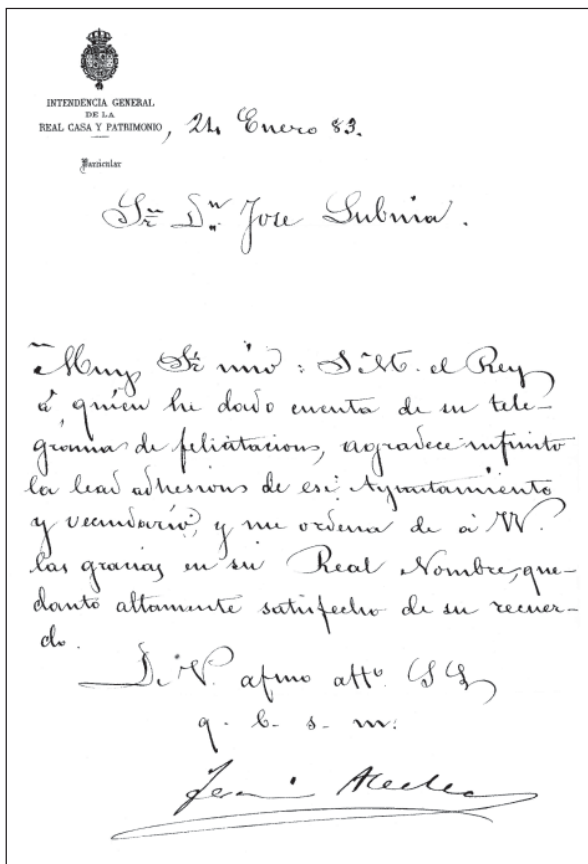 INTENDENCIA GENERAL
DE LA
REAL CASA Y PATRIMONIO, 24 Enero 83.
Particular
Sr. Dn. Jose Subiria.
Muy Sr mio: S.M. el Rey
á quien he dado cuenta de su tele-
grama de felicitacions, agradece infinito
la leal adhesions de ese Ayuntamiento
y vecindario, y me ordena de á VV.
las gracias en su Real Nombre, que-
danto altamente satisfecho de su recuer-
do.
De V. afmo atto. SS
q. b. s. m.